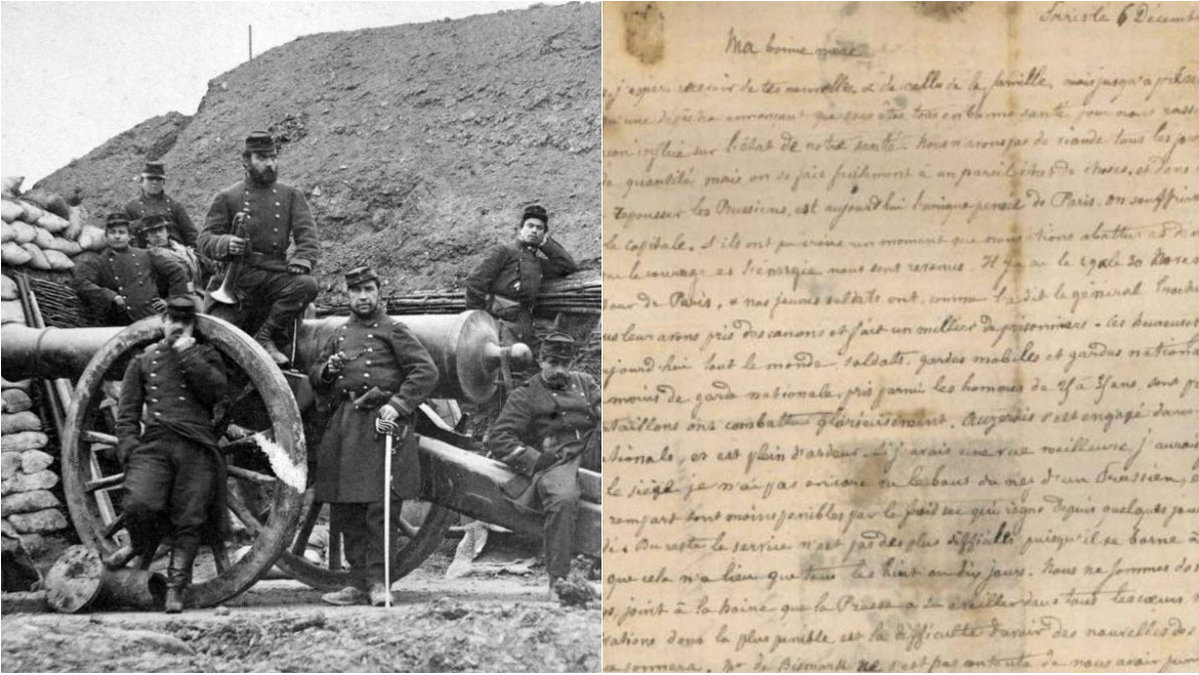 Paris le 6 Décem
Ma bonne mère
j'espère recevoir de tes nouvelles & de celles de la famille, mais jusqu'à
une dépêche annonçant que vous êtes tous en bonne santé, pour nous rass
influé sur l'état de notre santé. Nous n'avons pas de viande tous les jo
quantité, mais on se fait facilement à un pareil état de choses, et dans
repousser les Prussiens, est aujourd'hui l'unique pensée de Paris. On souffrir
la capitale, s'ils ont pu croire un moment que nous étions abattus et
le courage et l'énergie nous sont revenus. Il y a eu le 29 & le 30 Nove
tour de Paris, & nos jeunes soldats ont, comme l'a dit le général Troch
leur avons pris des canons et fait un millier de prisonniers. les
jourd'hui tout le monde, soldats, gardes mobiles et gardes nationa
moins de garde nationale, pris parmi les hommes de 25 à 35 ans, sont
taillons ont combattu glorieusement. s'est engagé dans
tionale, et est plein d'ardeur. Si j'avais une vue meilleure j'aurais
le siège je n'ai pas encore vu le bout du nez d'un Prussien,
rempart sont moins pénibles par le froid sec qui règne depuis quelques jou
Du reste le service n'est pas des plus difficiles puisqu'il se borne à
que cela n'a lieu que tous les huit ou dix jours. Nous ne sommes
joint à la haine que la Prusse a su éveiller dans tous les cœurs
rations dont la plus pénible est la difficulté d'avoir des nouvelles des
sonnera. Mr de Bismark ne s'est pas contenté de nous avoir